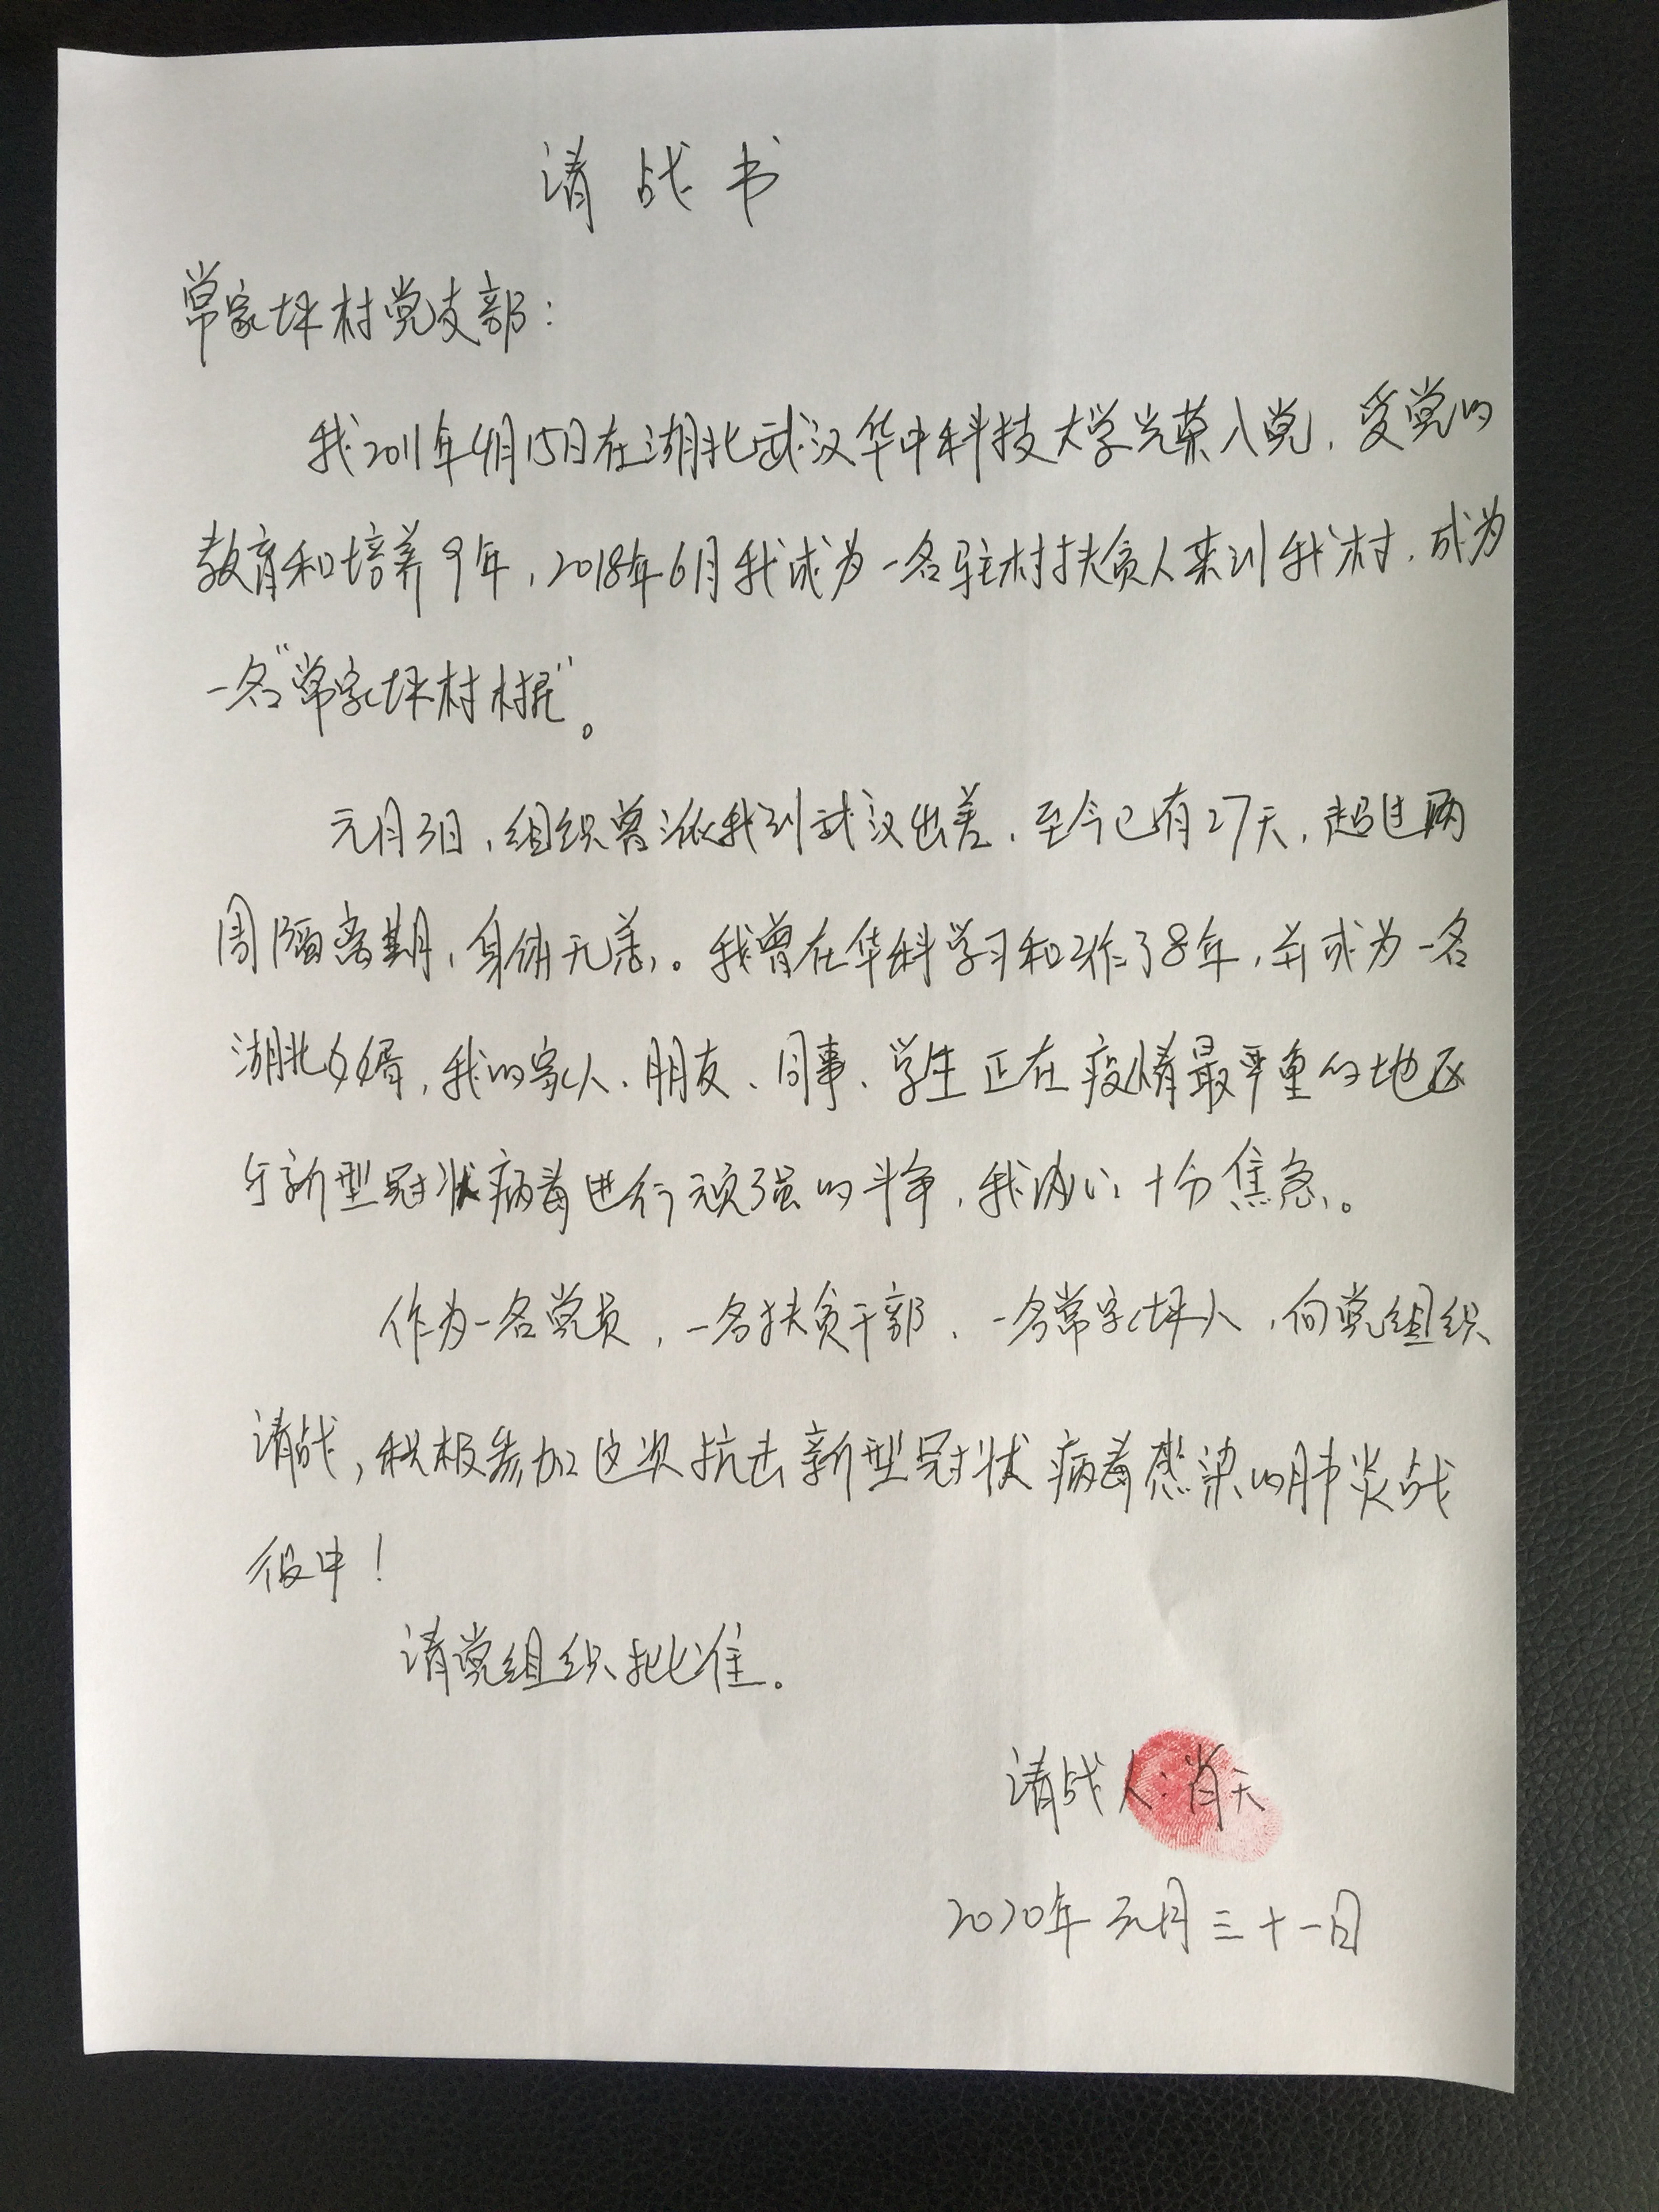 请战书
常家坪村党支部：
我2011年4月15日在湖北武汉华中科技大学光荣入党，受党的
教育和培养9年，2018年6月我成为一名驻村扶贫人来到我村，成为
一名“常家坪村村民”。
元月3日，组织曾派我到武汉出差，至今已有27天，超过两
周隔离期，身体无恙。我曾在华科学习和工作了8年，并成为一名
湖北女婿，我的家人、朋友、同事、学生正在疫情最严重的地区
与新型冠状病毒进行顽强的斗争，我内心十分焦急。
作为一名党员，一名扶贫干部、一名常家坪人，向党组织
请战，积极参加这次抗击新型冠状病毒感染的肺炎战
役中！
请党组织批准。
请战人：肖天
2020年元月三十一日